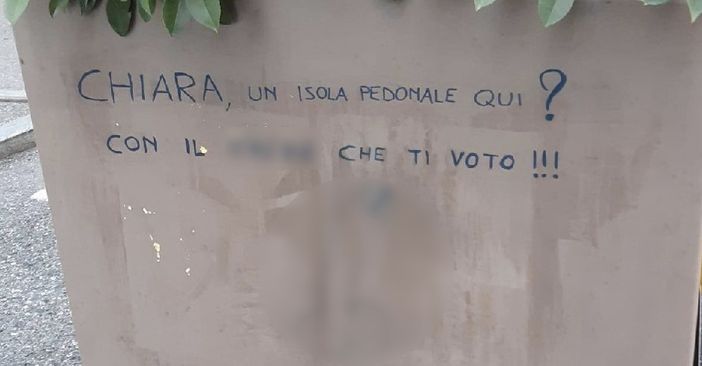 CHIARA, UN ISOLA PEDONALE QUI ?
CON IL CHE TI VOTO !!!